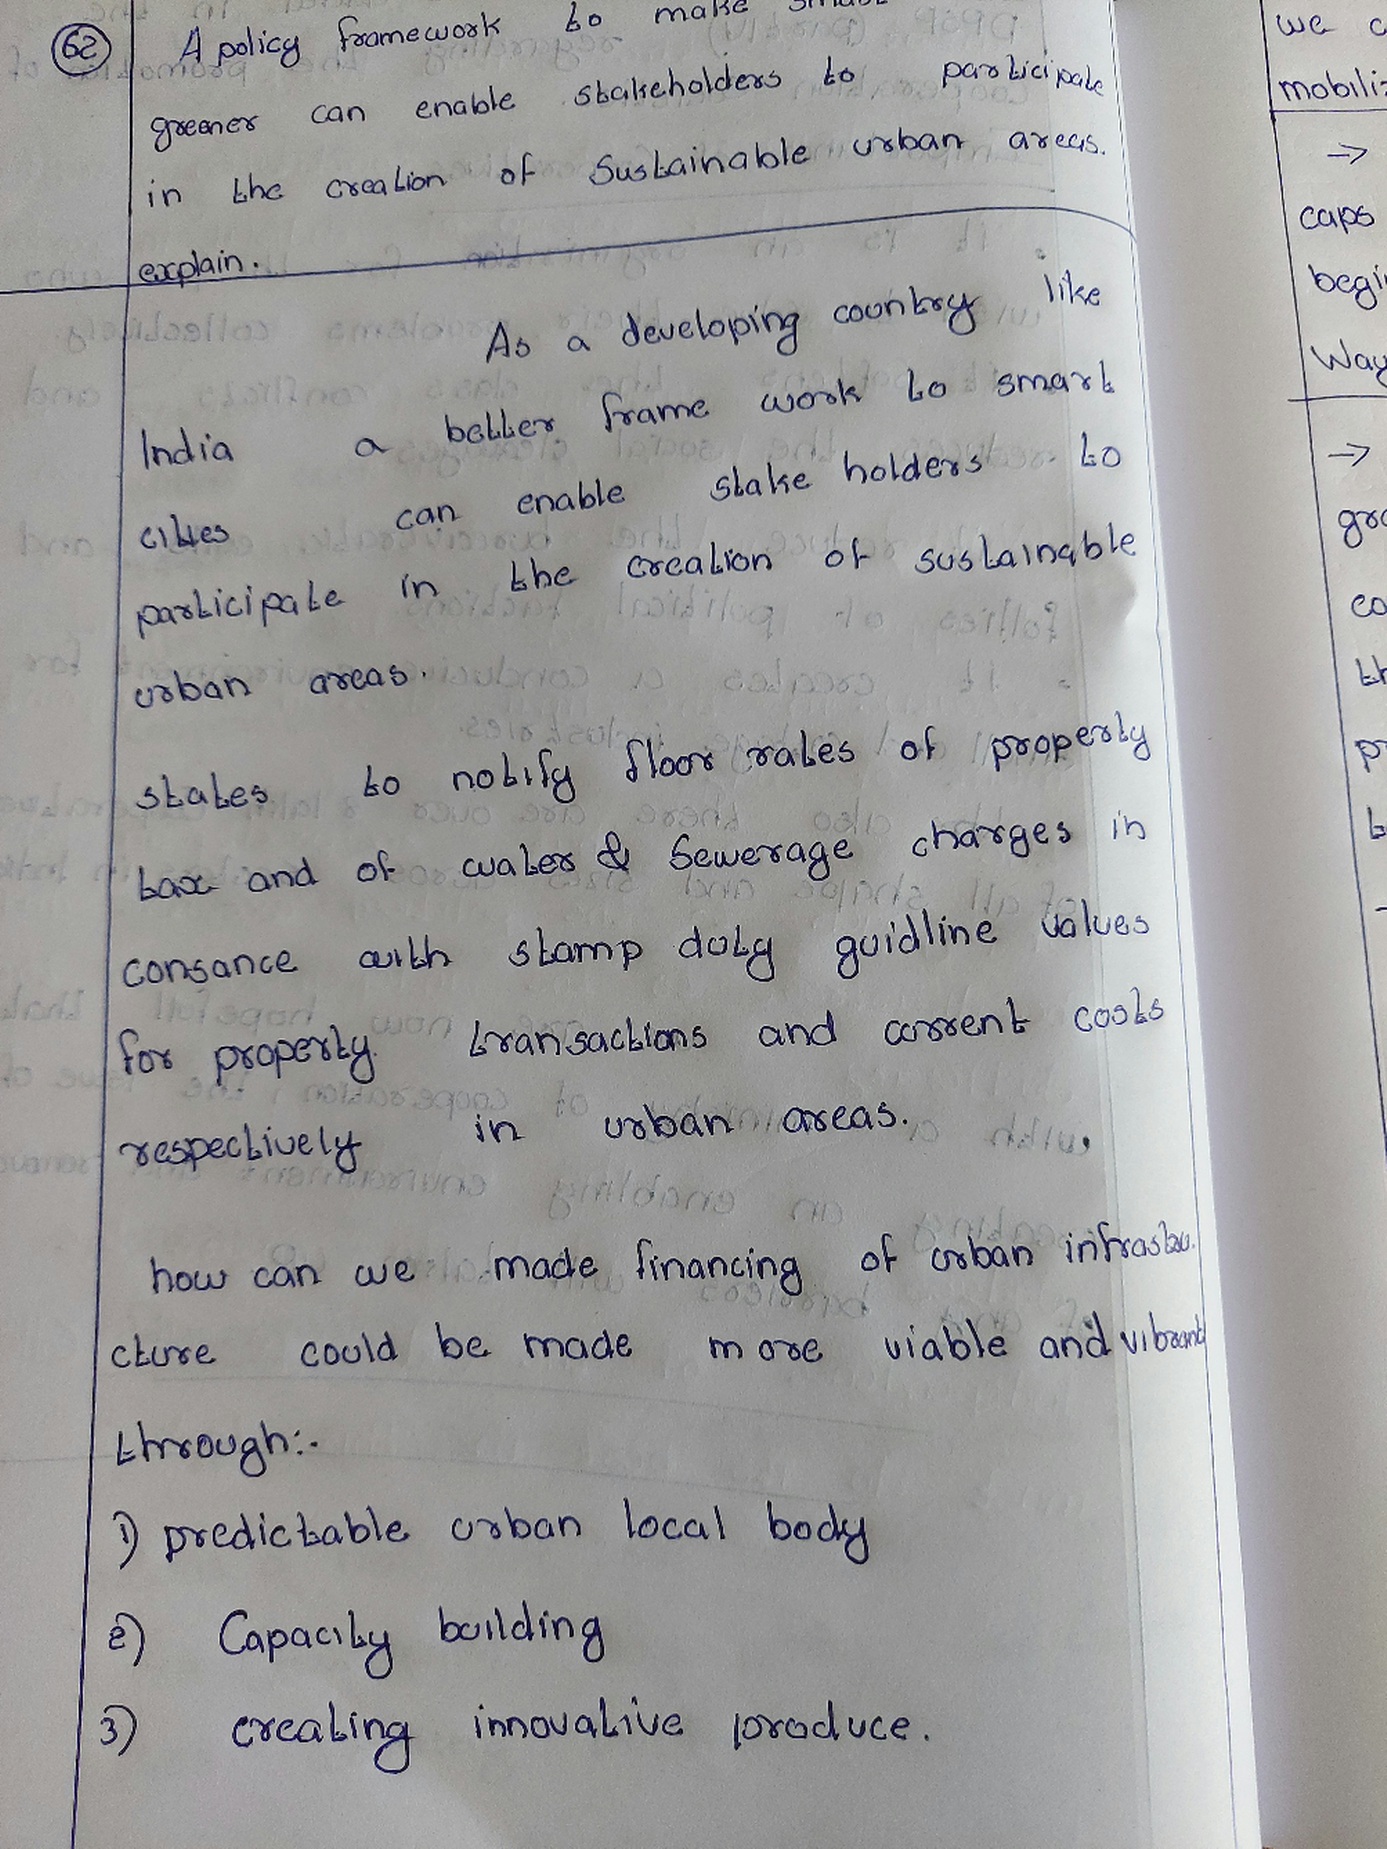 62 A policy framework to make
greener can enable stakeholders to participate
in the creation of Sustainable urban areas.
explain.
As a developing country like
India a better frame work to smart
cities can enable stake holders to
participate in the creation of sustainable
urban areas.
states to notify floor rates of property
tax and of water & Sewerage charges in
consance with stamp duty guidline values
for property transactions and current costs
respectively in urban areas.
how can we made financing of urban infrastru-
cture could be made more viable and vibrant
through:-
1) predictable urban local body
2) Capacity building
3) creating innovative produce.
we c
mobiliz
→
caps
begi
Way
→
gro
co
th
pr